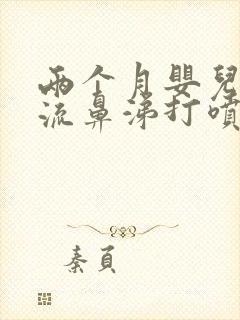 兩个月嬰兒
流鼻涕打噴
秦頁